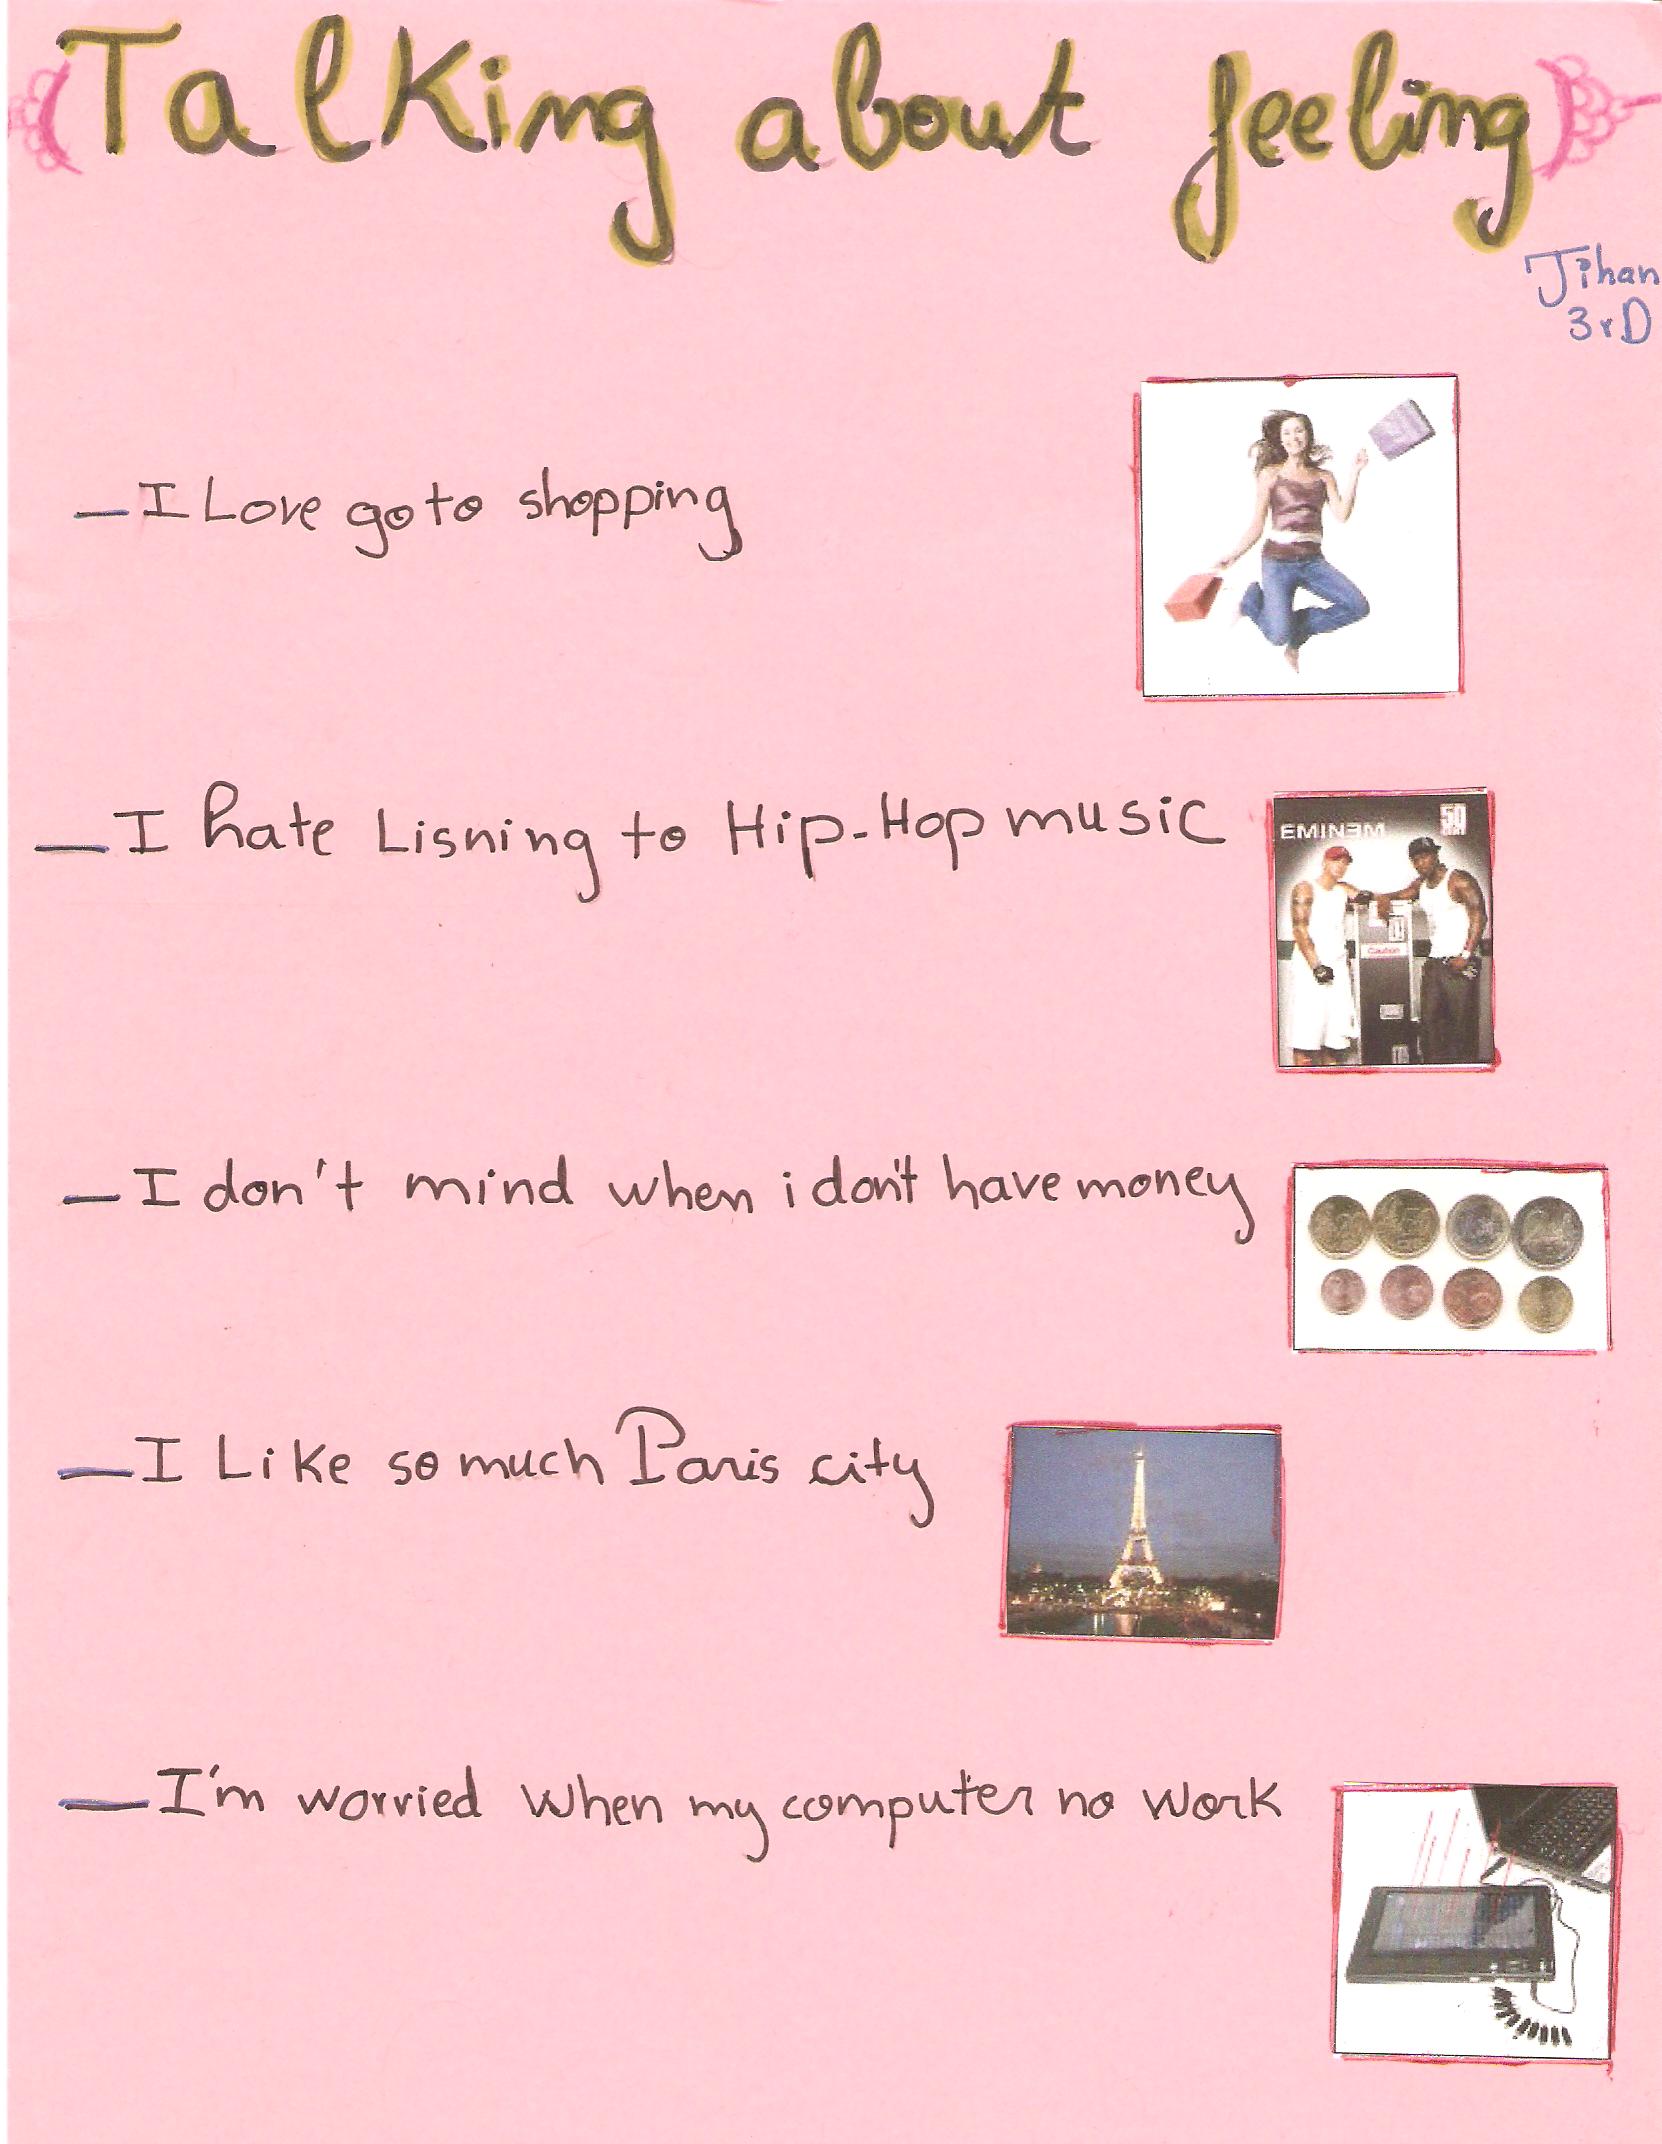 Talking about feeling
Jihan
3rD
_I Love go to shopping
_I hate Lisning to Hip-Hop music
EMINEM
50
Caution
_I don't mind when i don't have money
_I Like so much Paris city
_I'm worried when my computer no work